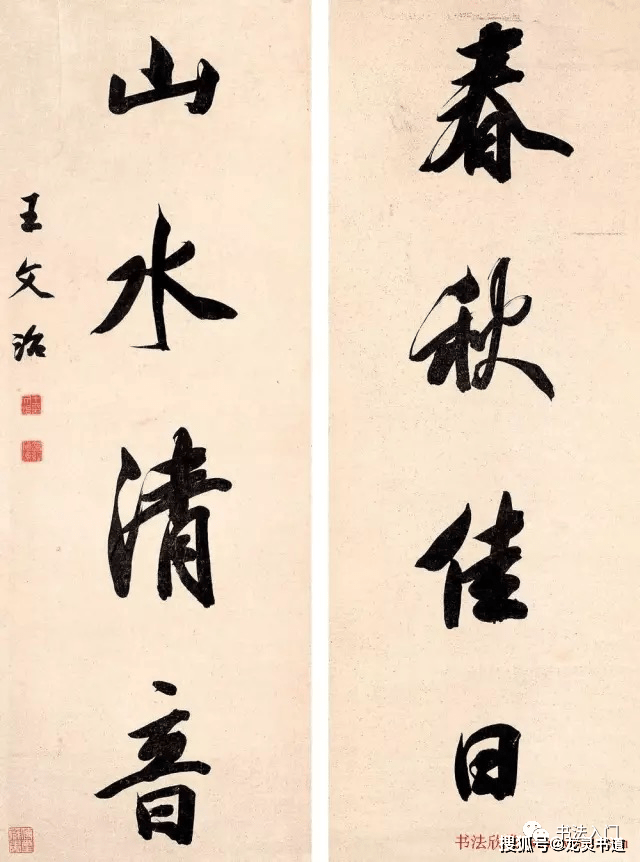 春秋佳日
山水清音
王文治
书法入门
搜狐号@龙灵书道
书法欣